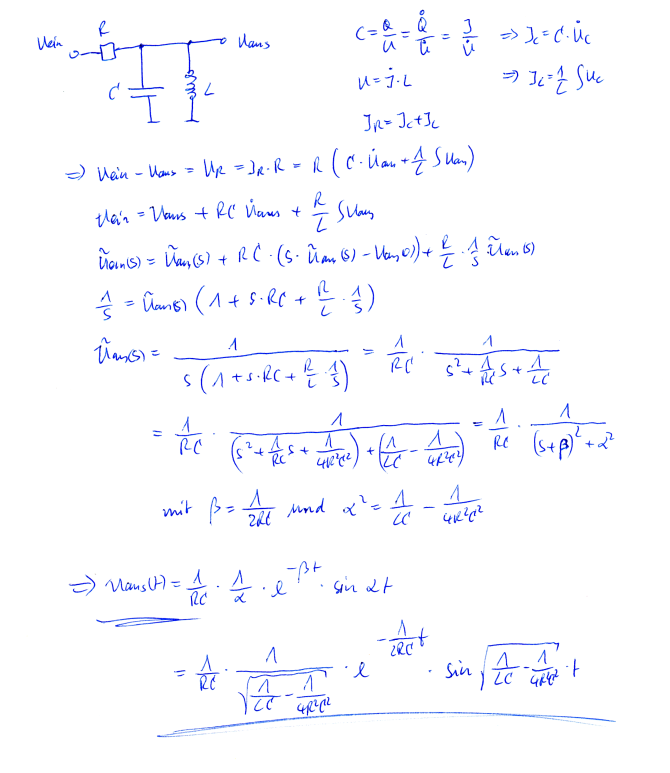 R
Uein Uaus
C L
C = Q/U = Q̇/U̇ = J/U̇ ⇒ J_C = C·U̇_C
U = J̇·L ⇒ J_L = 1/L ∫U_C
J_R = J_C + J_L
⇒ Uein − Uaus = U_R = J_R·R = R (C·U̇aus + 1/L ∫Uaus)
Uein = Uaus + RC U̇aus + R/L ∫Uaus
Ũein(s) = Ũaus(s) + RC·(s·Ũaus(s) − Uaus(0)) + R/L · 1/s · Ũaus(s)
1/s = Ũaus(s) (1 + s·RC + R/L · 1/s)
Ũaus(s) = 1/(s (1 + s·RC + R/L · 1/s)) = 1/RC · 1/(s² + 1/RC s + 1/LC)
= 1/RC · 1/((s² + 1/RC s + 1/4R²C²) + (1/LC − 1/4R²C²)) = 1/RC · 1/((s+β)² + α²)
mit β = 1/2RC und α² = 1/LC − 1/4R²C²
⇒ Uaus(t) = 1/RC · 1/α · e^(−βt) · sin αt
= 1/RC · 1/√(1/LC − 1/4R²C²) · e^(−1/2RC t) · sin √(1/LC − 1/4R²C²) · t